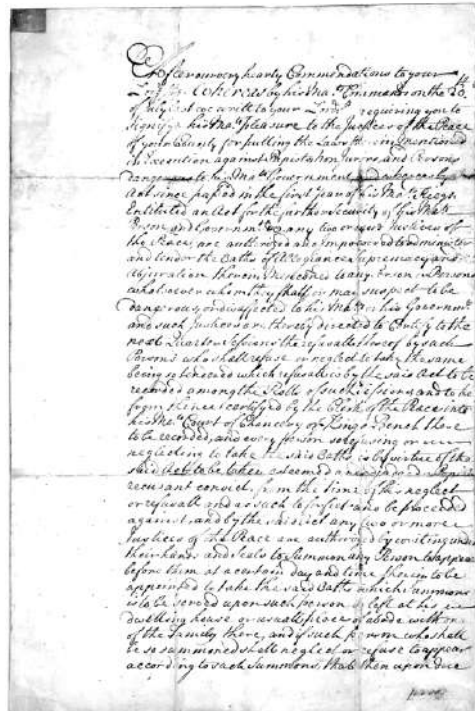 After our very hearty Commendations to your
Lordp. Whereas by his Maj. Command on the 20th
of July last we writt to your Lordp. requiring you to
signifye his Maj. pleasure to the Justices of the Peace
of your County for putting the Laws therein mentioned
in Execution against Papists Non Jurors, and Persons
dangerous to his Maj. Government, and whereas by an
Act since passed in the first year of his Maj. Reign
Entituled an Act for the further Security of his Maj.
Person and Governmt. &c any two or more Justices of
the Peace, are authorized and impowered to administer
and tender the Oaths of Allegiance Supremacy and
Abjuration therein menconed to any Person or Persons
whatsoever whom they shall or may suspect to be
dangerous or disaffected to his Maj. or his Governmt.
and such Justices are thereby directed to Certify to the
next Quarter Sessions the refusall thereof by such
Persons who shall refuse or neglect to take the same
being so tendered which refusall is by the said Act to be
recorded among the Rolls of such Sessions and to be
from thence certified by the Clerk of the Peace into
his Maj. Court of Chancery or Kings Bench there
to be recorded, and every person so refusing or
neglecting to take the said Oaths is by virtue of the
said Act to be taken esteemed and adjudged a Popish
recusant convict, from the time of his neglect
or refusall and as such to forfeit and be proceeded
against, and by the said Act any two or more
Justices of the Peace are authorized by writing under
their hands and Seals to Summon any Person to appear
before them at a certain day and time therein to be
appointed to take the said Oaths which Summons
is to be served upon such person or left at his
dwelling house or usuall place of abode with one
of the Family there, and if such person who shall
be so summoned shall neglect or refuse to appear
according to such Summons, that then upon due